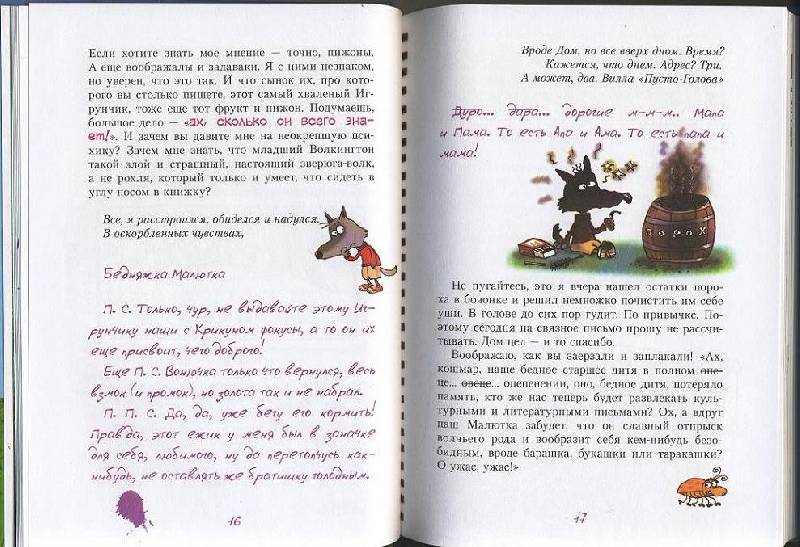 Если хотите знать мое мнение — точно, пижоны.
А еще воображалы и задаваки. Я с ними незнаком,
но уверен, что это так. И что сынок их, про кото-
рого вы столько пишете, этот самый хваленый Иг-
рунчик, тоже еще тот фрукт и пижон. Подумаешь,
большое дело — «ах, сколько он всего зна-
ет!». И зачем вы давите мне на неокрепшую пси-
хику? Зачем мне знать, что младший Волкингтон
такой злой и страшный, настоящий зверюга-волк,
а не рохля, который только и умеет, что сидеть в
углу носом в книжку?
Все, я расстроился, обиделся и надулся.
В оскорбленных чувствах,
Бедняжка Малютка
П. С. Только, чур, не выдавайте этому Иг-
рунчику наши с Крикуном фокусы, а то он их
еще присвоит, чего доброго!
Еще П. С. Вонючка только что вернулся, весь
взмок (и промок), но золота так и не набрал.
П. П. С. Да, да, уже бегу его кормить!
Правда, этот ежик у меня был в заначке
для себя, любимого, ну да перетопчусь как-
нибудь, не оставлять же братишку голодным.
16
Вроде Дом, но все вверх дном. Время?
Кажется, что днем. Адрес? Три.
А может, два. Вилла «Пусто-Голова»
Дуро... дара... дорогие м-м-м.. Мапа
и Пама. То есть Апа и Ама. То есть папа и
мама!
Порох
Не пугайтесь, это я вчера нашел остатки поро-
ха в бочонке и решил немножко почистить им себе
уши. В голове до сих пор гудит. По привычке. По-
этому сегодня на связное письмо прошу не рассчи-
тывать. Дом цел — и то спасибо.
Воображаю, как вы заерзали и заплакали! «Ах,
кошмар, наше бедное старшее дитя в полном опе-
це... овсце... оцепенении, оно, бедное дитя, потеряло
память, кто же нас теперь будет развлекать куль-
турными и литературными письмами? Ох, а вдруг
наш Малютка забудет, что он славный отпрыск
волчьего рода и вообразит себя кем-нибудь безо-
бидным, вроде барашка, букашки или таракашки?
О ужас, ужас!»
17